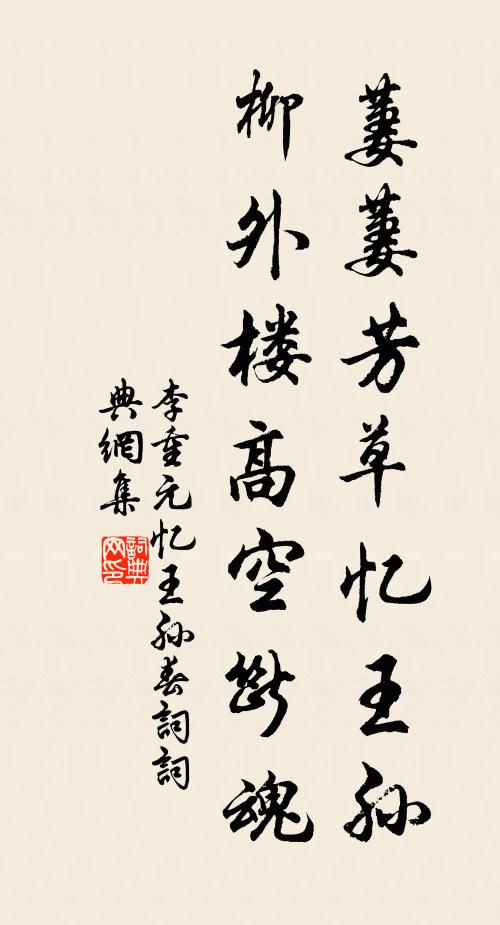 萋萋芳草忆王孙
柳外楼高空斷魂
李重元忆王孙春詞詞
典網集
詞典
网印